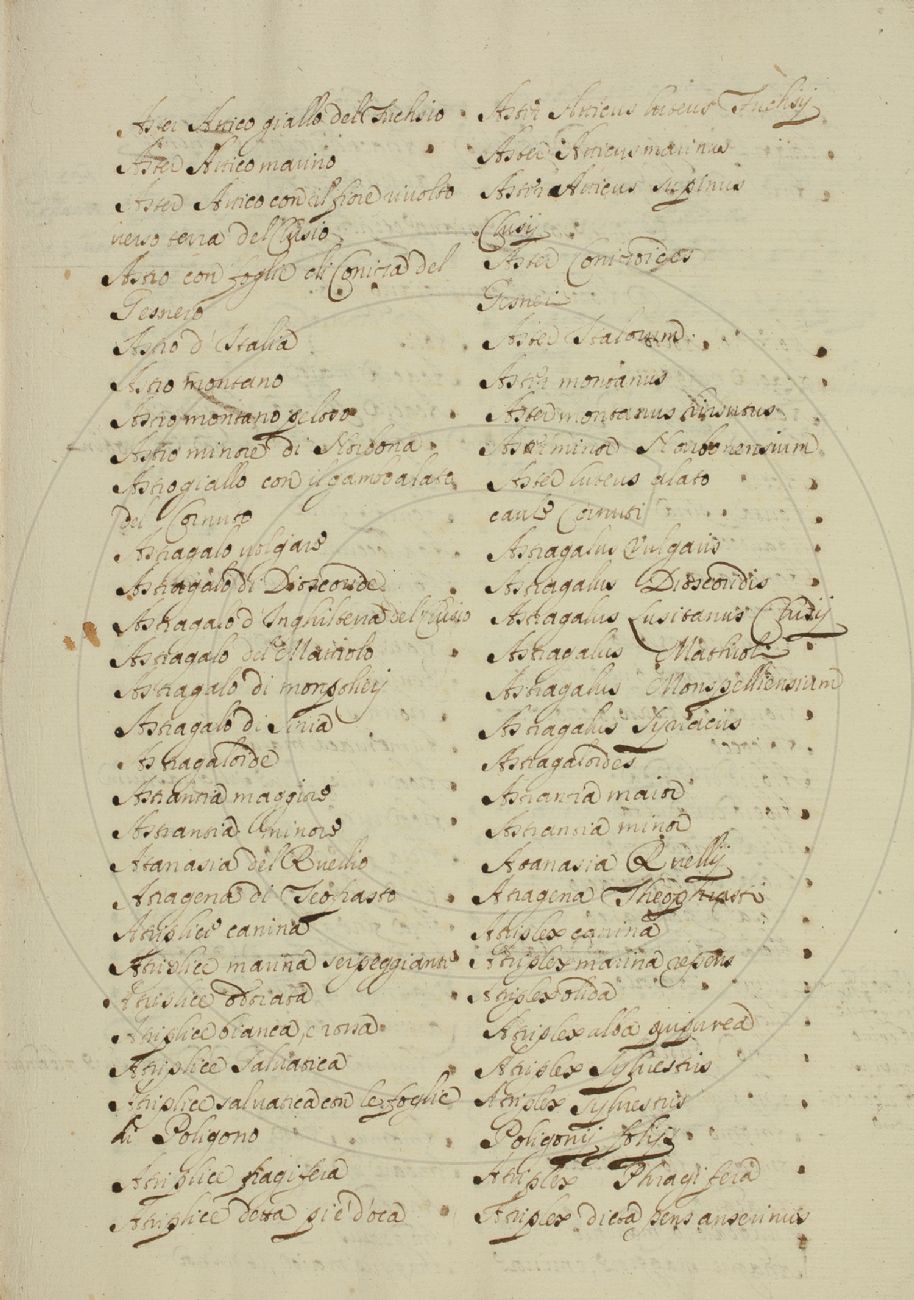 Aster Attico giallo del Fuchsio
Aster Attico marino
Aster Attico con il fiore rivolto
verso terra del Clusio
Astro con foglie di Coniza del
Gesnero
Astro d'Italia
Astro montano
Astro montano peloso
Astro minore di Narbona
Astro giallo con il gambo alato
del Cornuto
Astragalo volgare
Astragalo di Dioscoride
Astragalo d'Inghilterra del Clusio
Astragalo del Mattiolo
Astragalo di monpoliey
Astragalo di Siria
Astragaloide
Astrantia maggiore
Astrantia minore
Atanasia del Ruellio
Atragena di Teofrasto
Atriplice canina
Atriplice marina serpeggiante
Atriplice
Atriplice bianca, e rossa
Atriplice salvatica
Atriplice salvatica con le foglie
di Poligono
Atriplice fragifera
Atriplice detta piè d'oca
Aster Atticus luteus Fuchsij
Aster Atticus marinus
Aster Atticus supinus
Clusij
Aster Conizoides
Gesneri
Aster Italorum
Aster montanus
Aster montanus hirsutus
Aster minor Narbonensium
Aster luteus alato
caule Cornuti
Astragalus Vulgaris
Astragalus Dioscoridis
Astragalus Lusitanus Clusij
Astragalus Mathioli
Astragalus Monspelliensium
Astragalus Syriacus
Astragaloides
Astrantia maior
Astrantia minor
Atanasia Ruellij
Atragena Theophrasti
Atriplex canina
Atriplex marina repens
Atriplex olida
Atriplex alba purpurea
Atriplex Sylvestris
Atriplex Sylvestris
Poligonij folijs
Atriplex Phragifera
Atriplex dicta pens anserinus